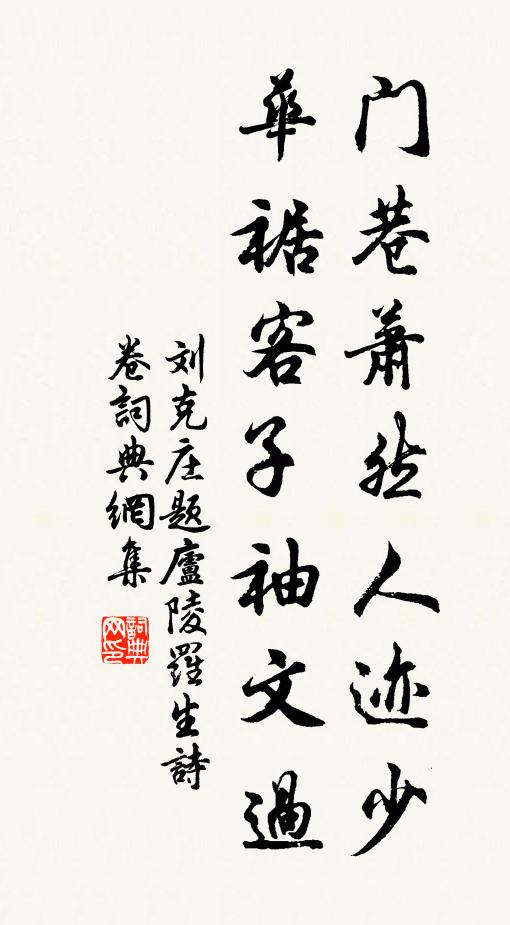 门巷萧然人迹少
华裾客子袖文过
刘克庄题庐陵罗生诗
卷词典网集
词典
网印